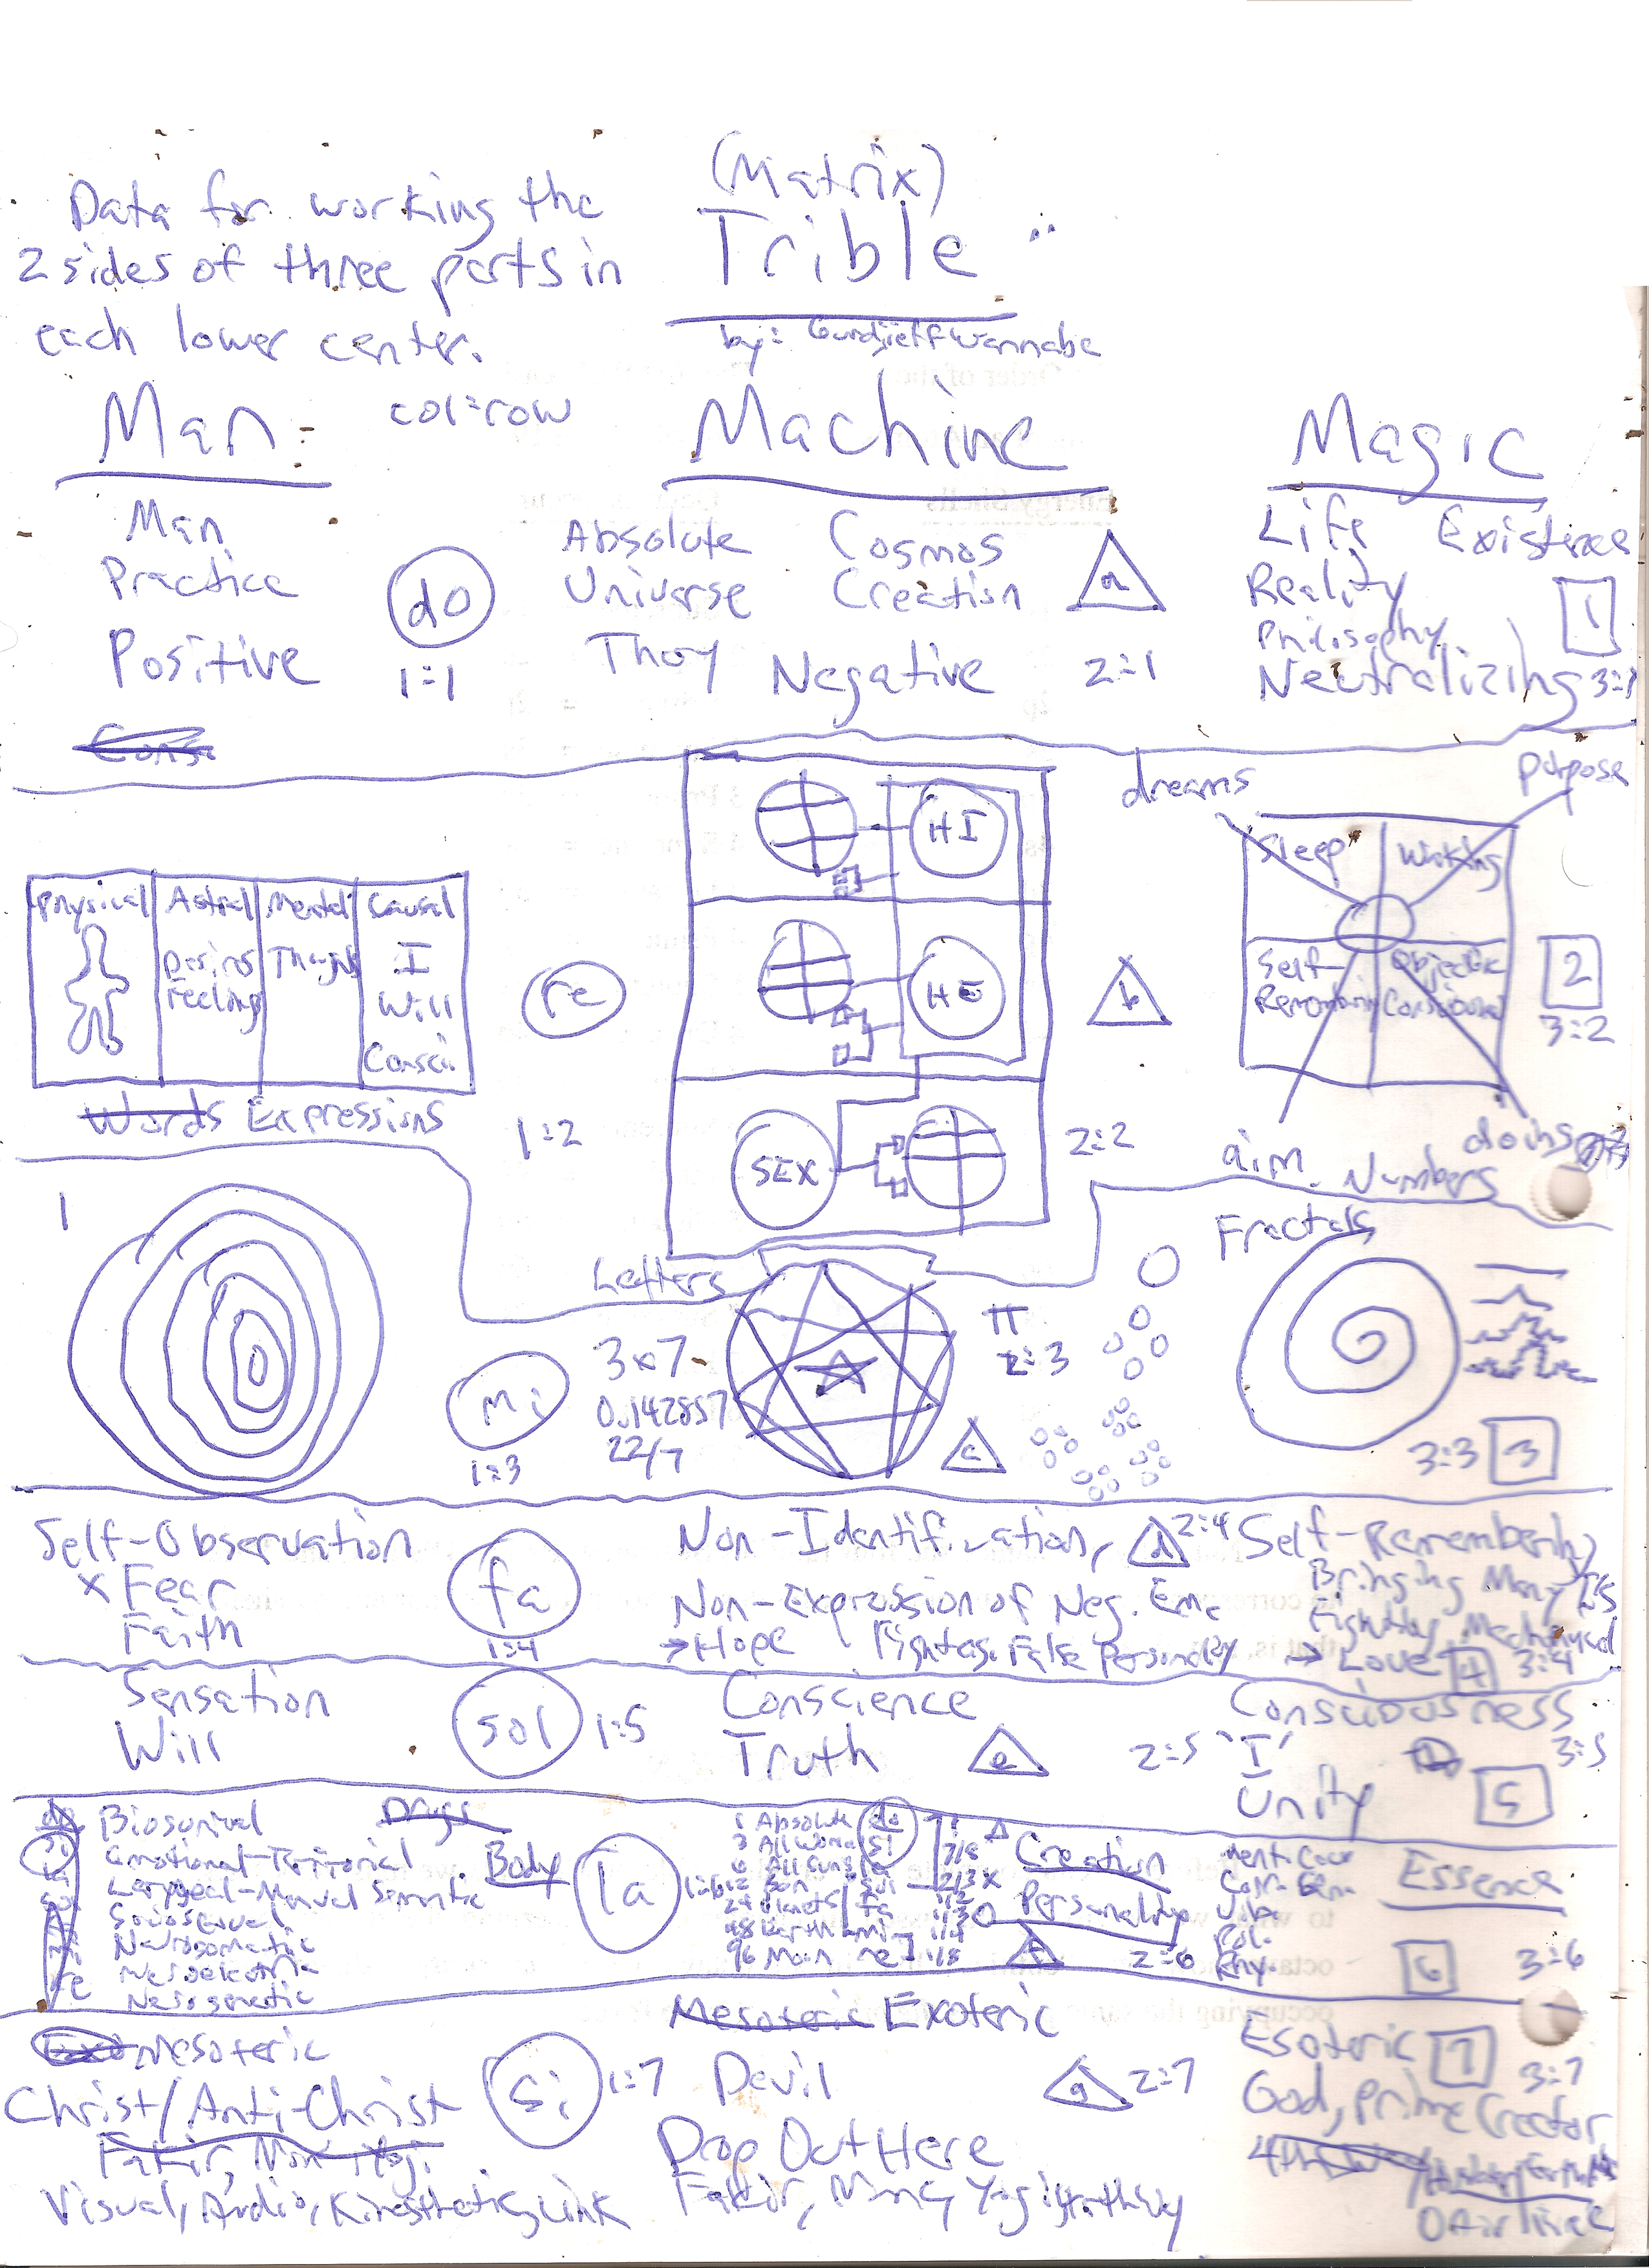 (Matrix)
Data for working the
Trible
2 sides of three parts in
each lower center.
by: Gurdjieffwannabe
Man
col:row
Machine
Magic
Man
Practice
Positive
do
1:1
Absolute Cosmos
Universe Creation
Thory Negative
a
2:1
Life Existence
Reality
Philosophy
Neutralizing
1
3:1
Physical
Astral
Desires
Feelings
Mental
Causal
I
Will
Consci
re
1:2
Words Expressions
HI
HE
SEX
b
2:2
dreams
purpose
Sleep
Self-
Objective
2
3:2
aim
doing
Numbers
1
mi
1:3
Letters
3x7
0.142857
22/7
π
2:3
c
Fractals
3:3
3
Self-Observation
x Fear
Faith
fa
1:4
Non-Identification,
d
2:4
Non-Expression of Neg. Emo
→Hope Fighting False Personality
Self-Remembering
Bringing Many I's
→ Love
4
3:4
Sensation
Will
sol
1:5
Conscience
Truth
e
2:5
Consciousness
'I'
Unity
3:5
5
Biosurival
Emotional-Teritorial
Laryngeal-Manual Semantic
Sociosexual
Neurosomatic
Drugs
Body
la
1:6
1 Absolute do
3 All Worlds si
6 All Suns la
12 Sun sol
24 Planets fa
48 Earth mi
96 Moon re
Creation
Personality
2:6
Essence
6
3:6
Mesoteric
Christ/Anti-Christ
si
1:7
Mesoteric Exoteric
Devil
g
2:7
Drop Out Here
Esoteric
7
3:7
God, Prime Creator
Visual, Audio, Kinesthetic, Link
Fakir, Monk, Yogi, 4thWay